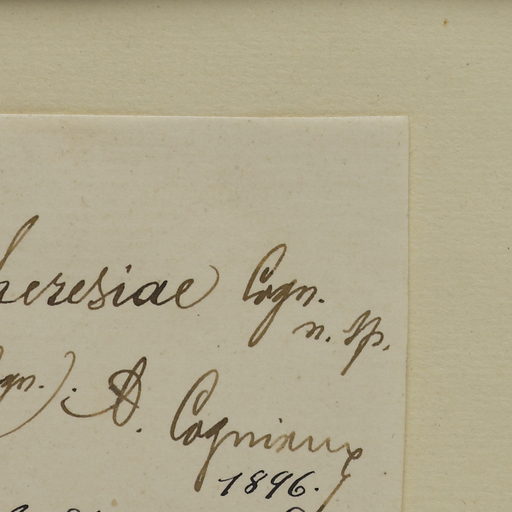 heresiae Cogn.
n. sp.
gn.). A. Cogniaux
1896.